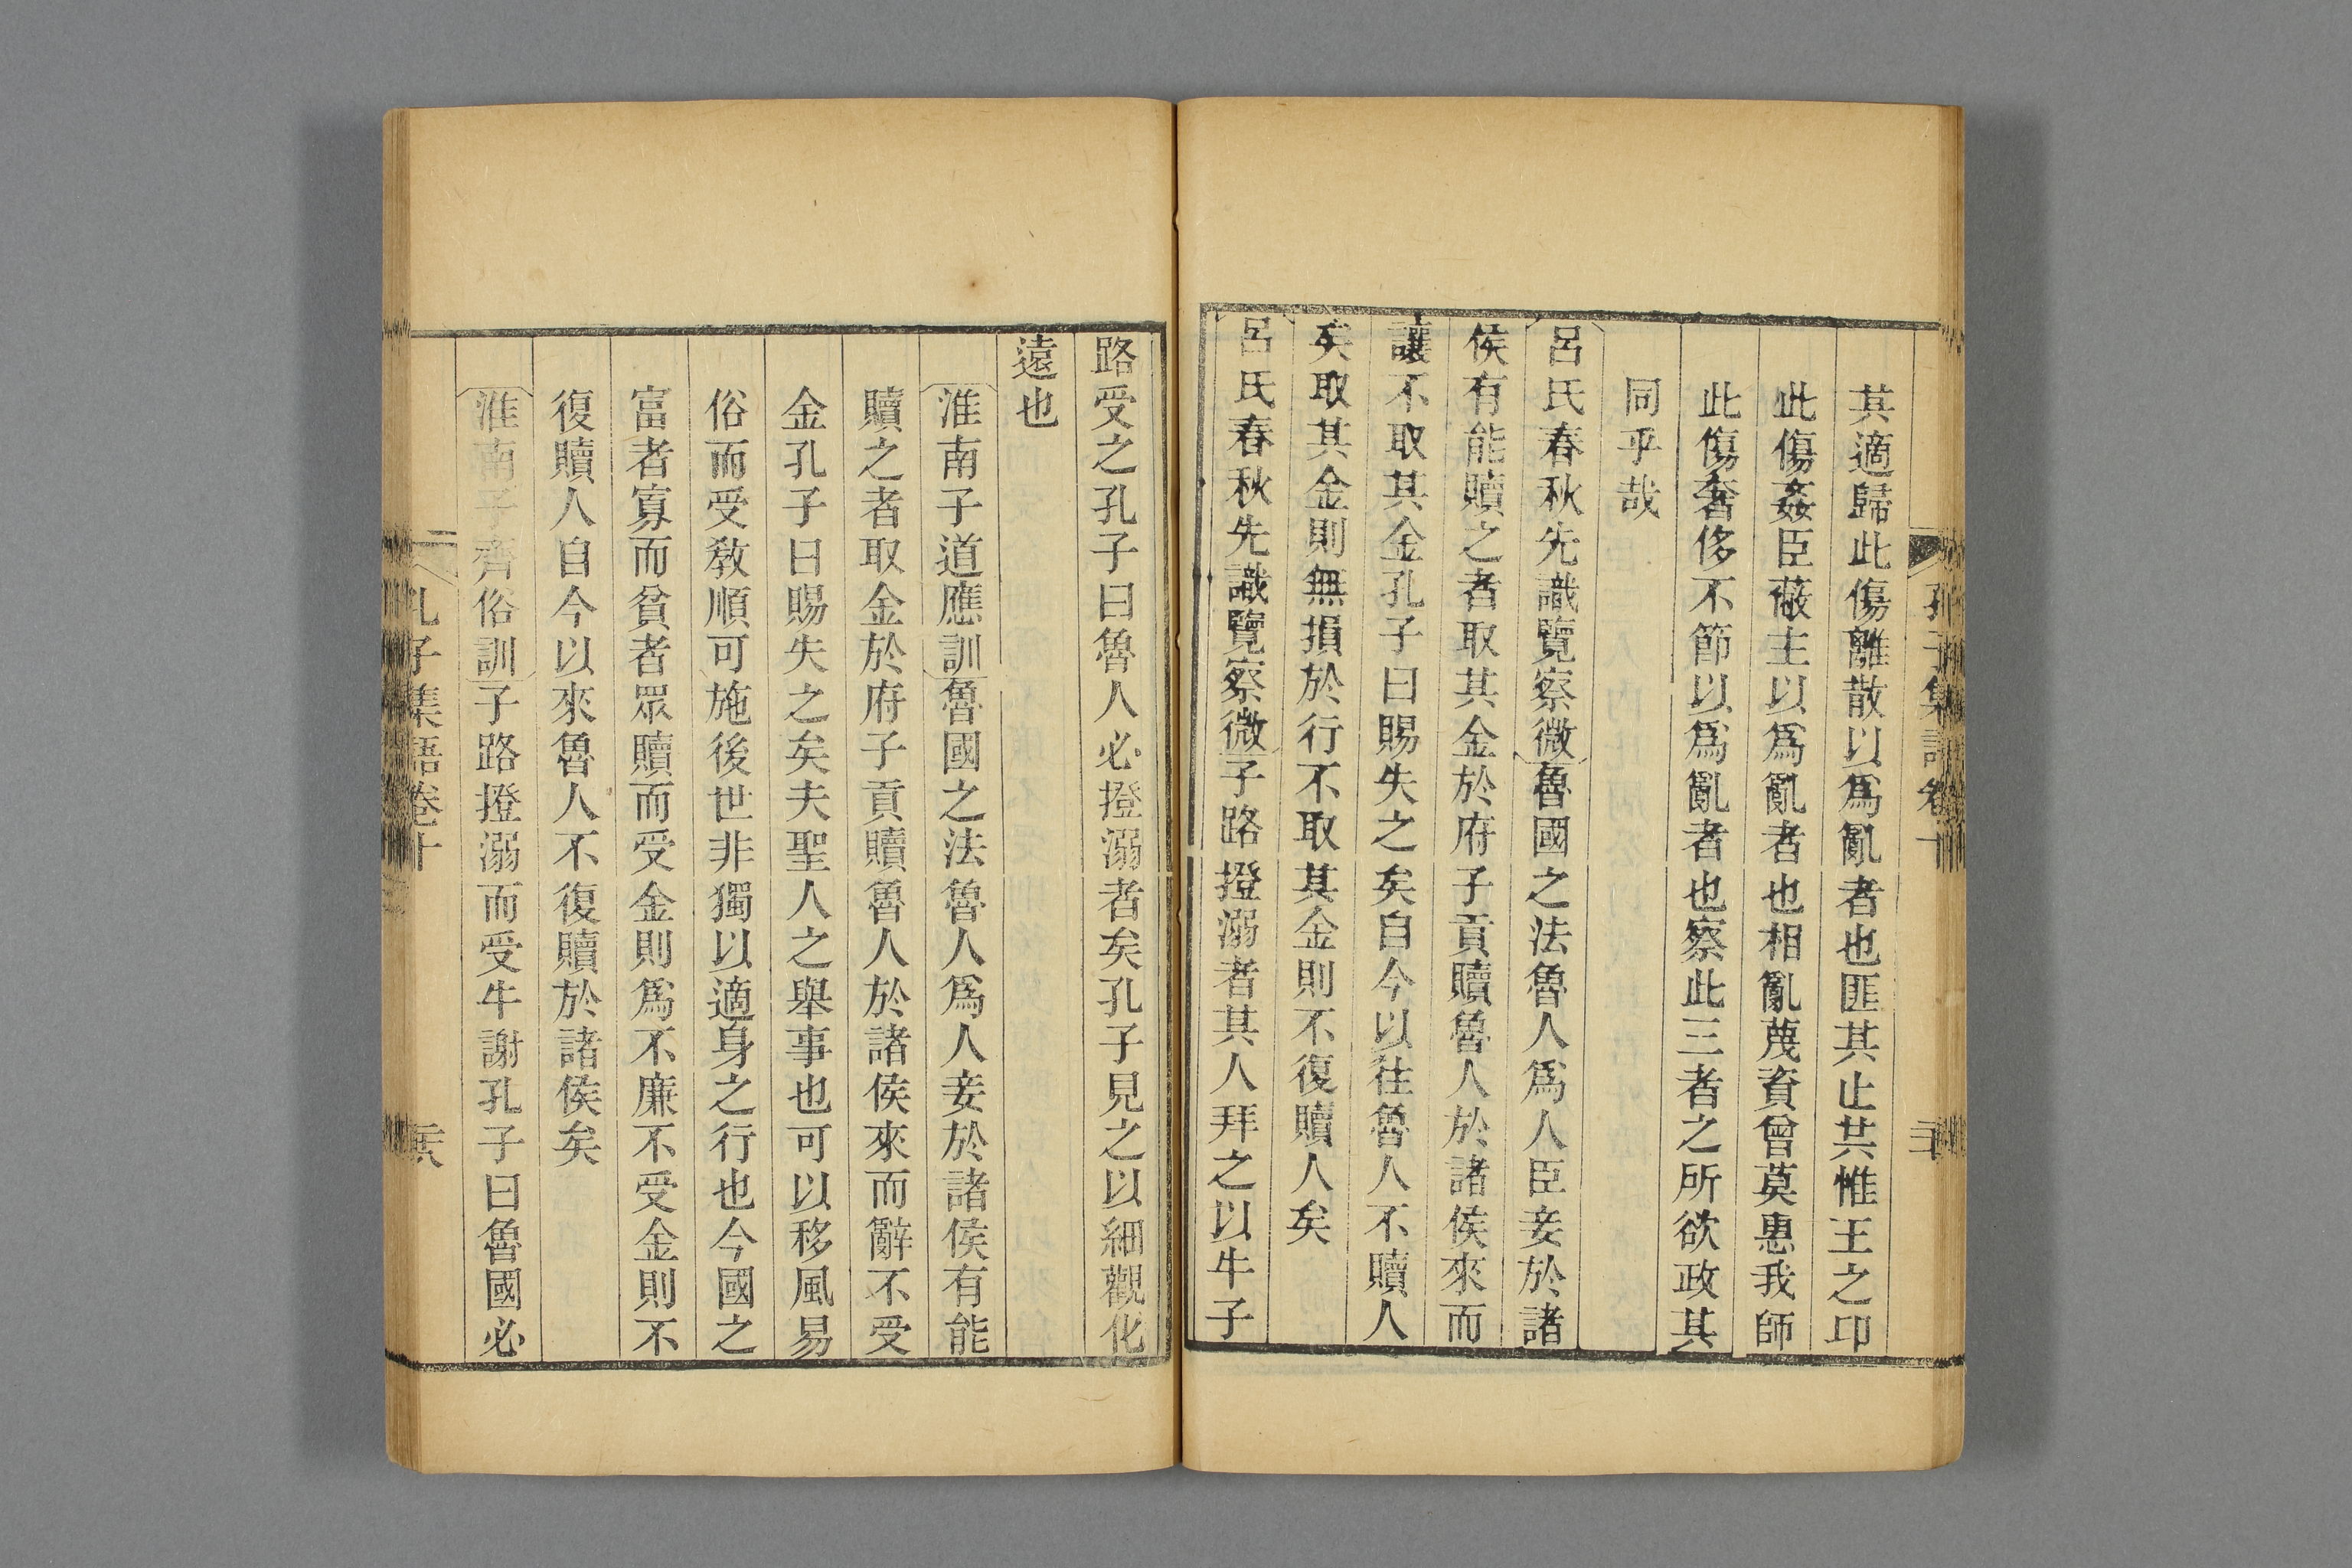 其適歸此傷離散以爲亂者也匪其止共惟王之卭
此傷姦臣蔽主以爲亂者也相亂蔑資曾莫惠我師
此傷奢侈不節以爲亂者也察此三者之所欲政其
同乎哉
呂氏春秋先識覽察微魯國之法魯人爲人臣妾於諸
侯有能贖之者取其金於府子貢贖魯人於諸侯來而
讓不取其金孔子曰賜失之矣自今以往魯人不贖人
矣取其金則無損於行不取其金則不復贖人矣
呂氏春秋先識覽察微子路撜溺者其人拜之以牛子
路受之孔子曰魯人必撜溺者矣孔子見之以細觀化
遠也
淮南子道應訓魯國之法魯人爲人妾於諸侯有能
贖之者取金於府子貢贖魯人於諸侯來而辭不受
金孔子曰賜失之矣夫聖人之舉事也可以移風易
俗而受敎順可施後世非獨以適身之行也今國之
富者寡而貧者眾贖而受金則爲不廉不受金則不
復贖人自今以來魯人不復贖於諸侯矣
淮南子齊俗訓子路撜溺而受牛謝孔子曰魯國必
孔子集語卷十